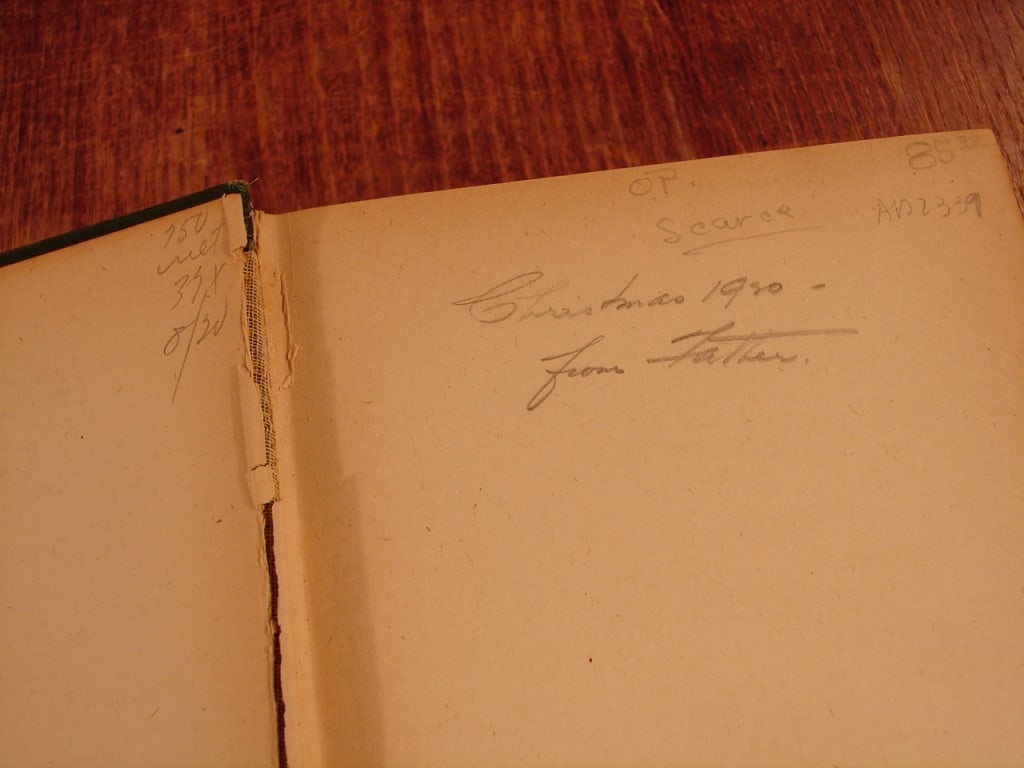 150
net
37X
8/20
OP.
85
Scarce
AD2339
Christmas 1920 -
from Father.